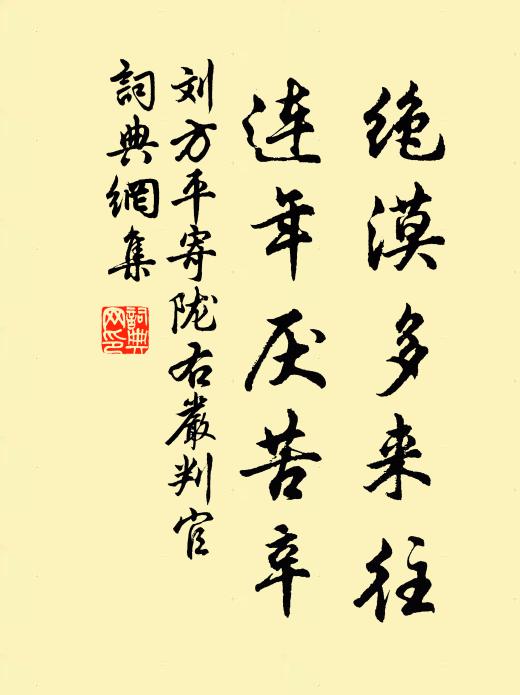 绝漠多来往
连年厌苦辛
刘方平寄陇右嚴判官
詞典網集
詞典
网印